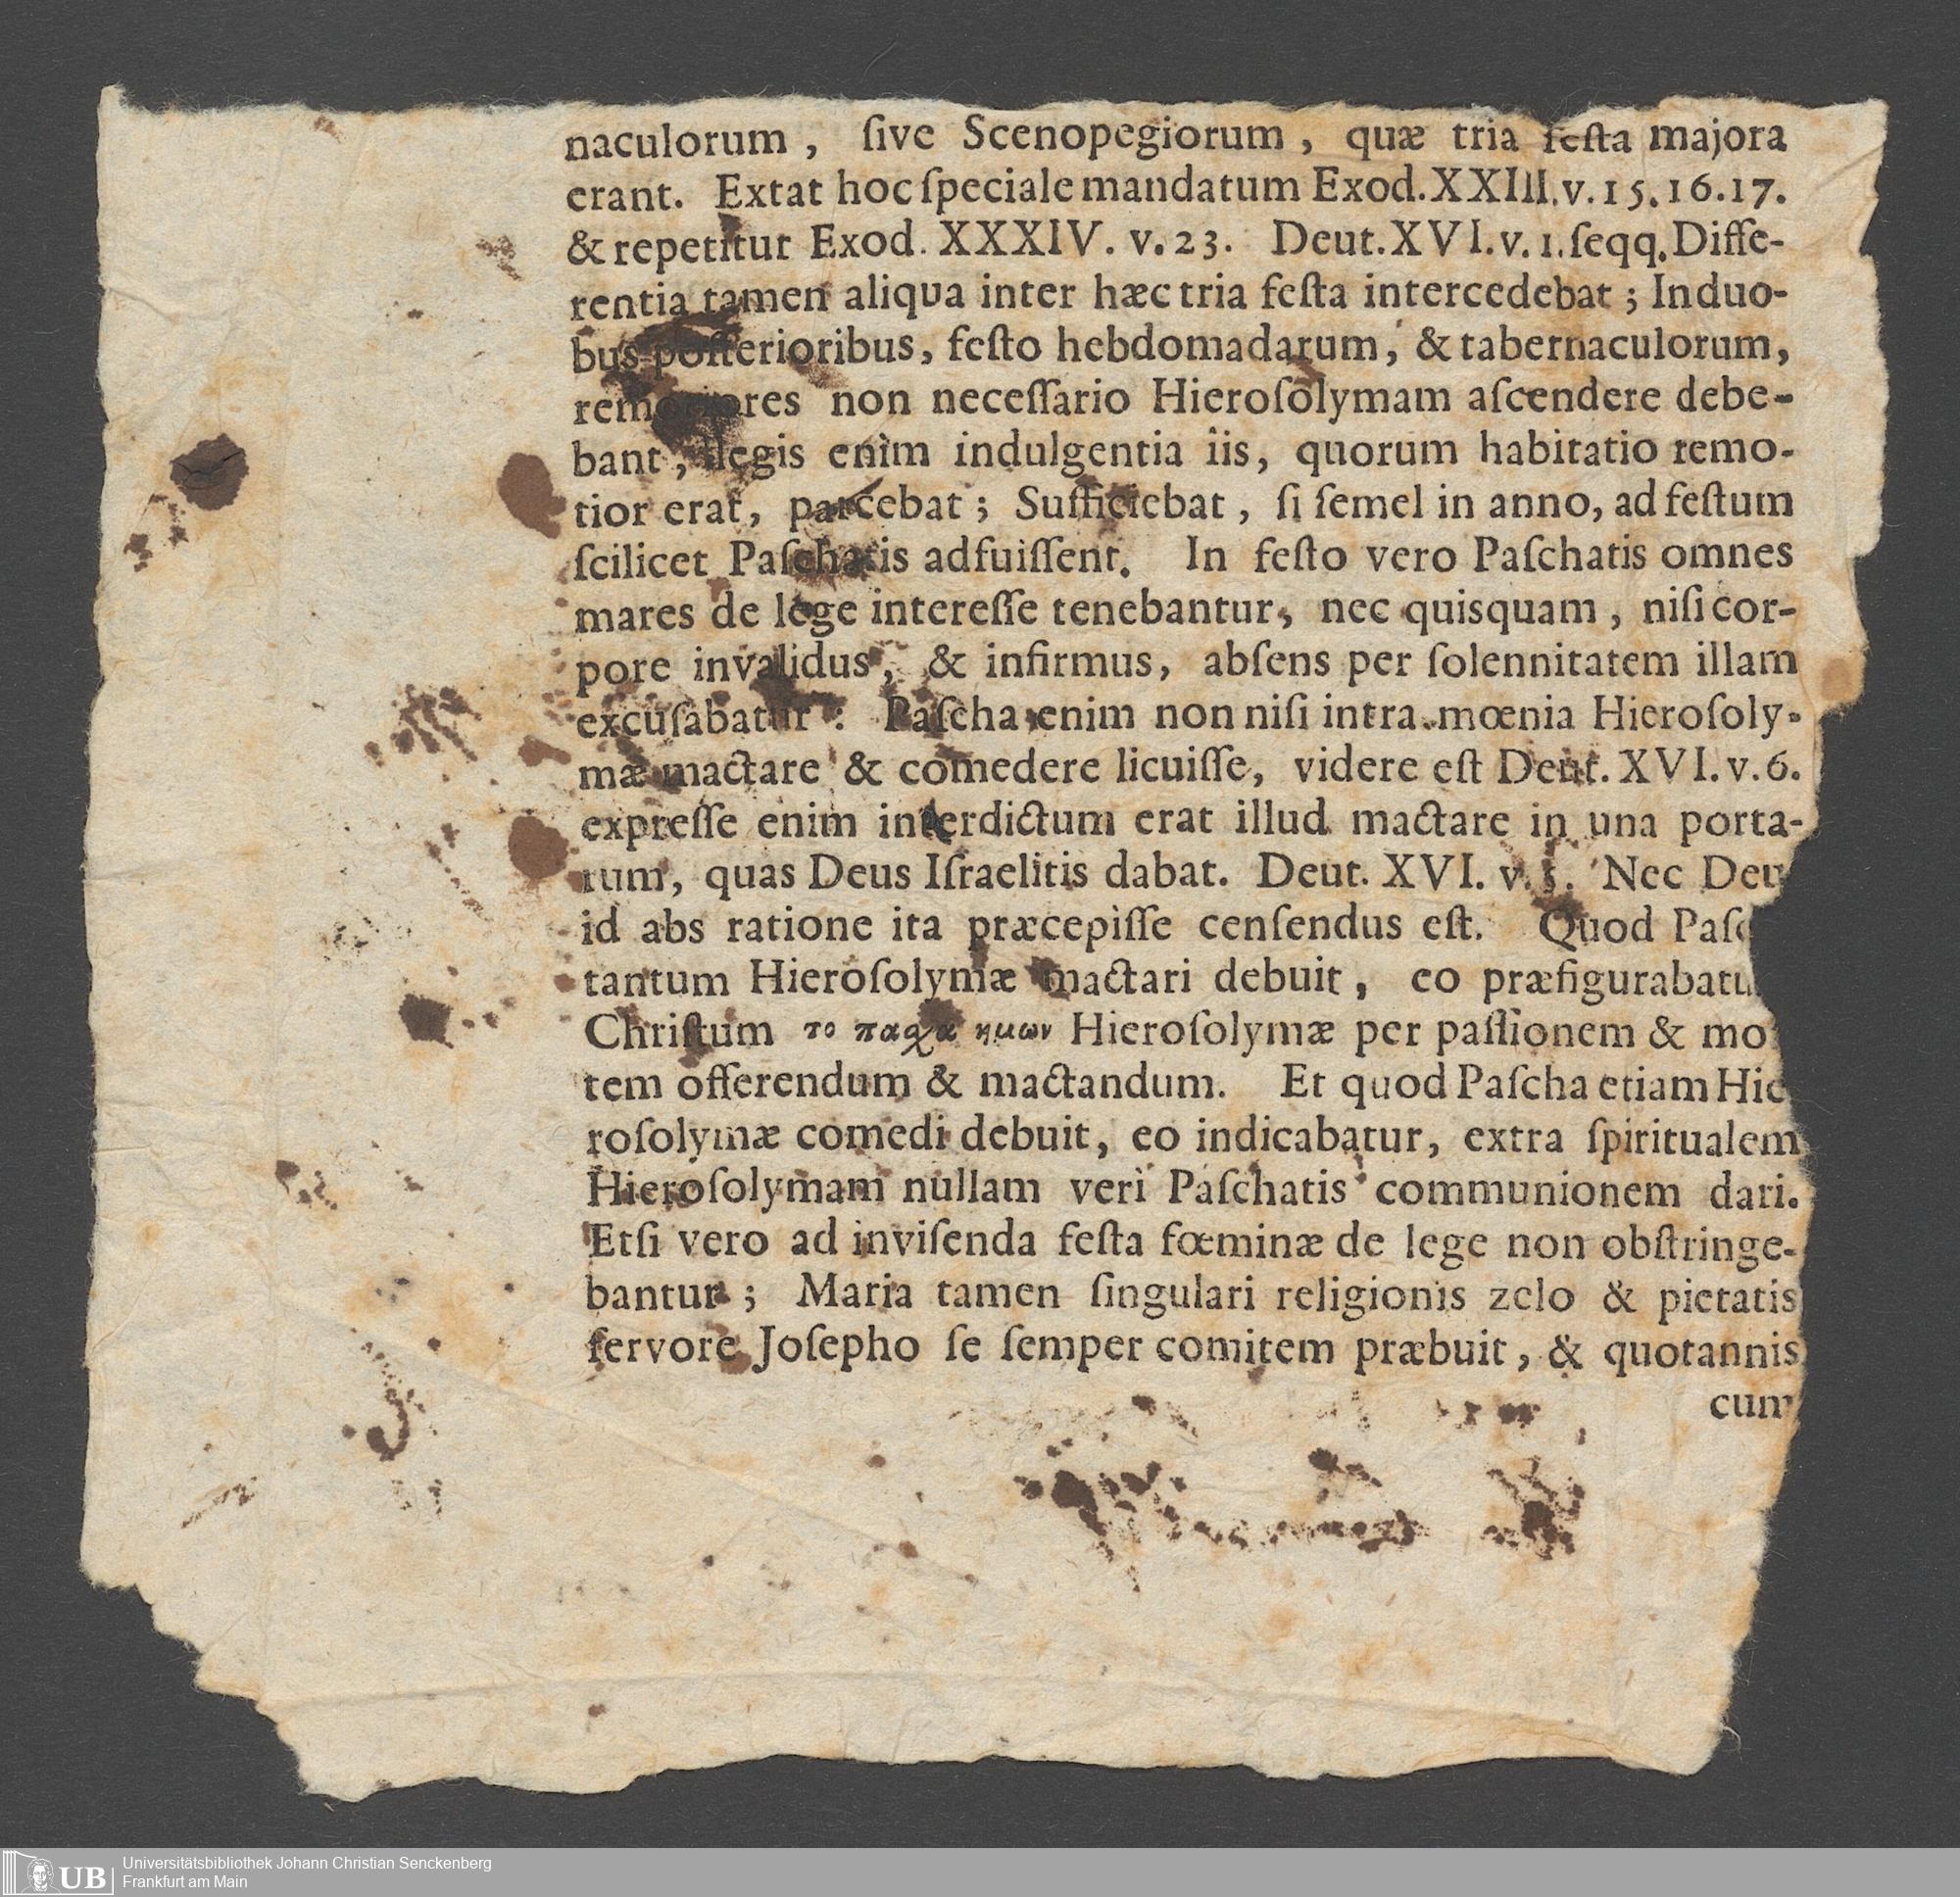 naculorum , ſive Scenopegiorum , quæ tria feſta majora
erant. Extat hoc ſpeciale mandatum Exod. XXIII. v. 15. 16. 17.
& repetitur Exod. XXXIV. v. 23. Deut. XVI. v. 1. ſeqq. Diffe-
rentia tamen aliqua inter hæc tria feſta intercedebat ; In duo-
bus poſterioribus, feſto hebdomadarum, & tabernaculorum,
remotiores non neceſſario Hieroſolymam aſcendere debe-
bant , legis enim indulgentia iis, quorum habitatio remo-
tior erat, parcebat ; Sufficiebat , ſi ſemel in anno, ad feſtum
ſcilicet Paſchatis adfuiſſent. In feſto vero Paſchatis omnes
mares de lege intereſſe tenebantur, nec quisquam , niſi cor-
pore invalidus, & infirmus, abſens per ſolennitatem illam
excuſabatur : Paſcha enim non niſi intra mœnia Hieroſoly-
mæ mactare & comedere licuiſſe, videre eſt Deut. XVI. v. 6.
expreſſe enim interdictum erat illud mactare in una porta-
rum, quas Deus Iſraelitis dabat. Deut. XVI. v. 5. Nec Deu
id abs ratione ita præcepiſſe cenſendus eſt. Quod Paſc
tantum Hieroſolymæ mactari debuit, eo præfigurabatu
Chriſtum το παϛχα ημων Hieroſolymæ per paſſionem & mo
tem offerendum & mactandum. Et quod Paſcha etiam Hie
roſolymæ comedi debuit, eo indicabatur, extra ſpiritualem
Hieroſolymam nullam veri Paſchatis communionem dari.
Etſi vero ad inviſenda feſta fœminæ de lege non obſtringe-
bantur ; Maria tamen ſingulari religionis zelo & pietatis
fervore Joſepho ſe ſemper comitem præbuit, & quotannis
cum
UB
Universitätsbibliothek Johann Christian Senckenberg
Frankfurt am Main